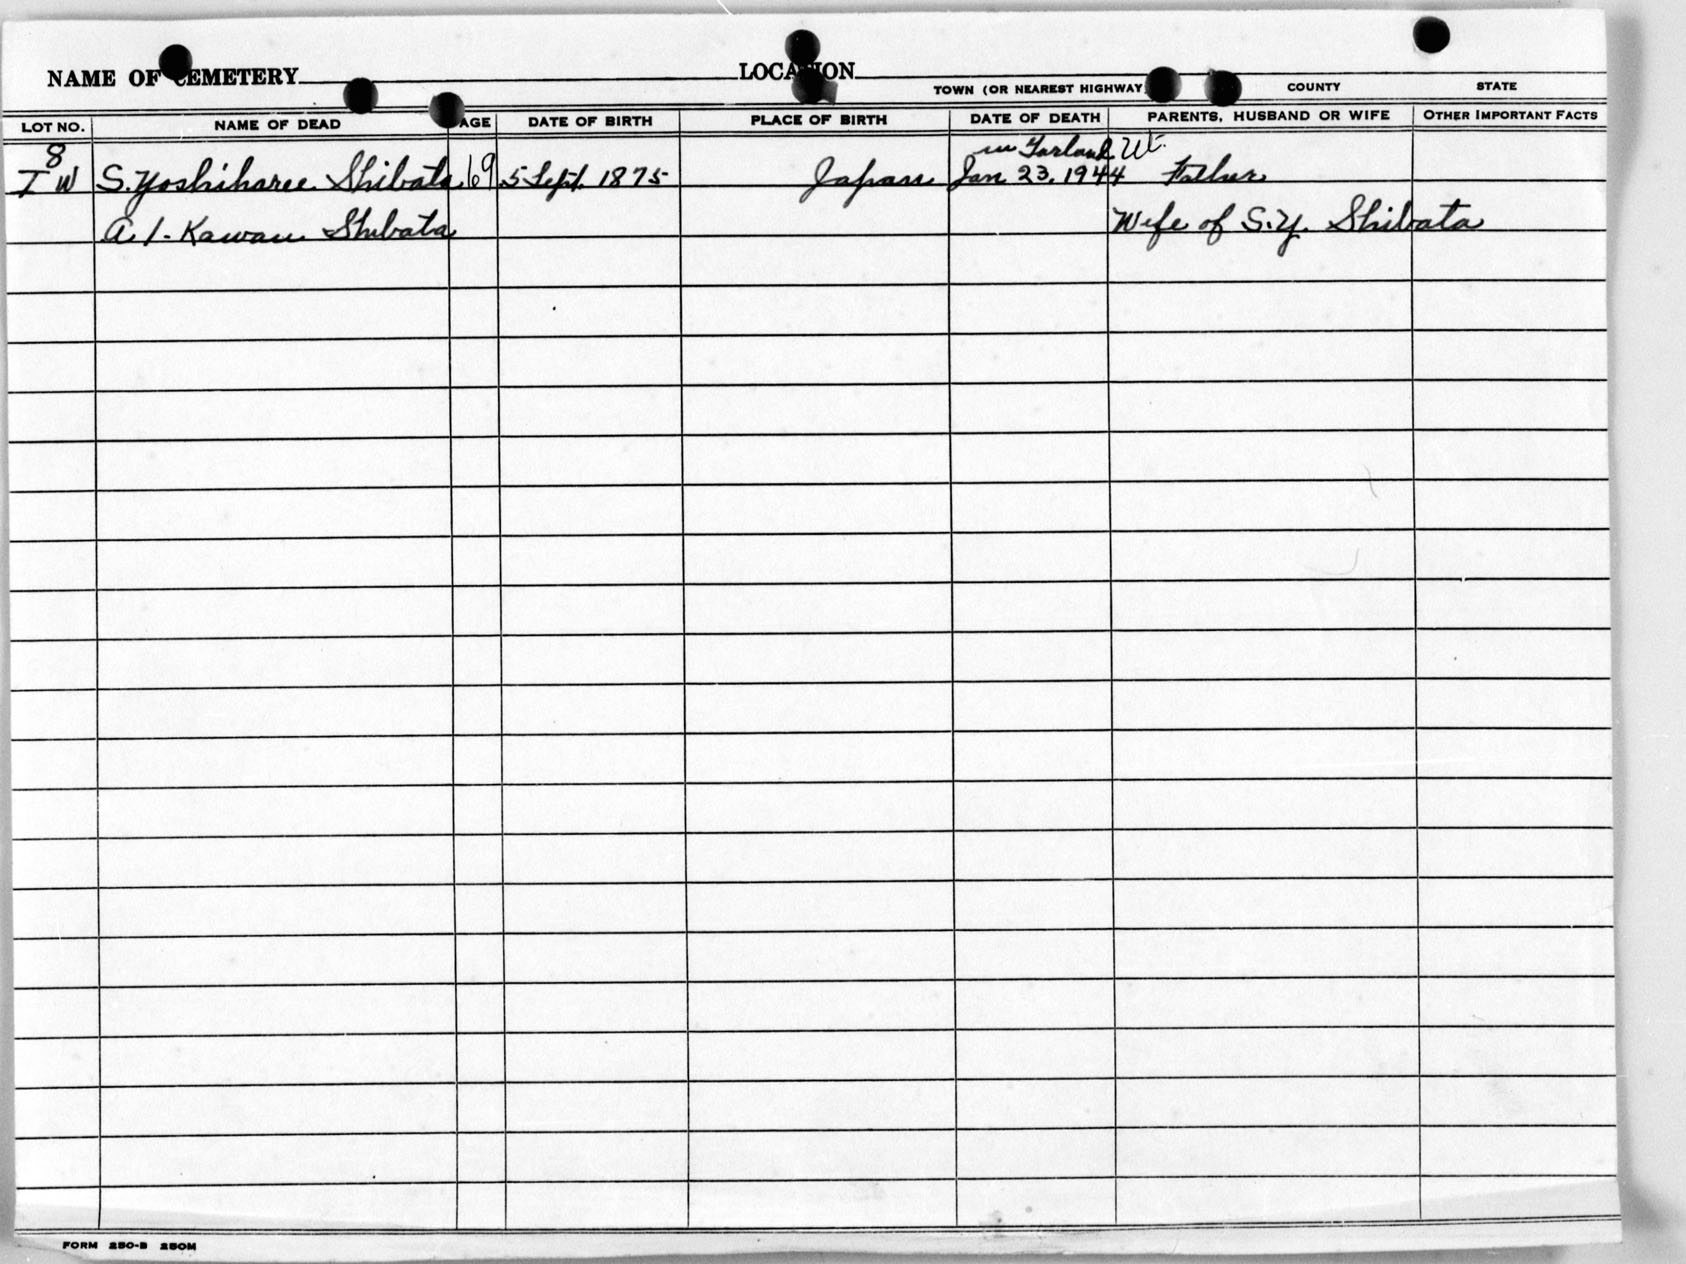 NAME OF CEMETERY LOCATION
TOWN (OR NEAREST HIGHWAY COUNTY STATE
LOT NO. NAME OF DEAD AGE DATE OF BIRTH PLACE OF BIRTH DATE OF DEATH PARENTS, HUSBAND OR WIFE OTHER IMPORTANT FACTS
8 in Garland Ut.
I W S. Yoshiharee Shibata 69 5 Sept. 1875 Japan Jan 23, 1944 Father
Kawau Shibata Wife of S.Y. Shibata
FORM 250-B 250M